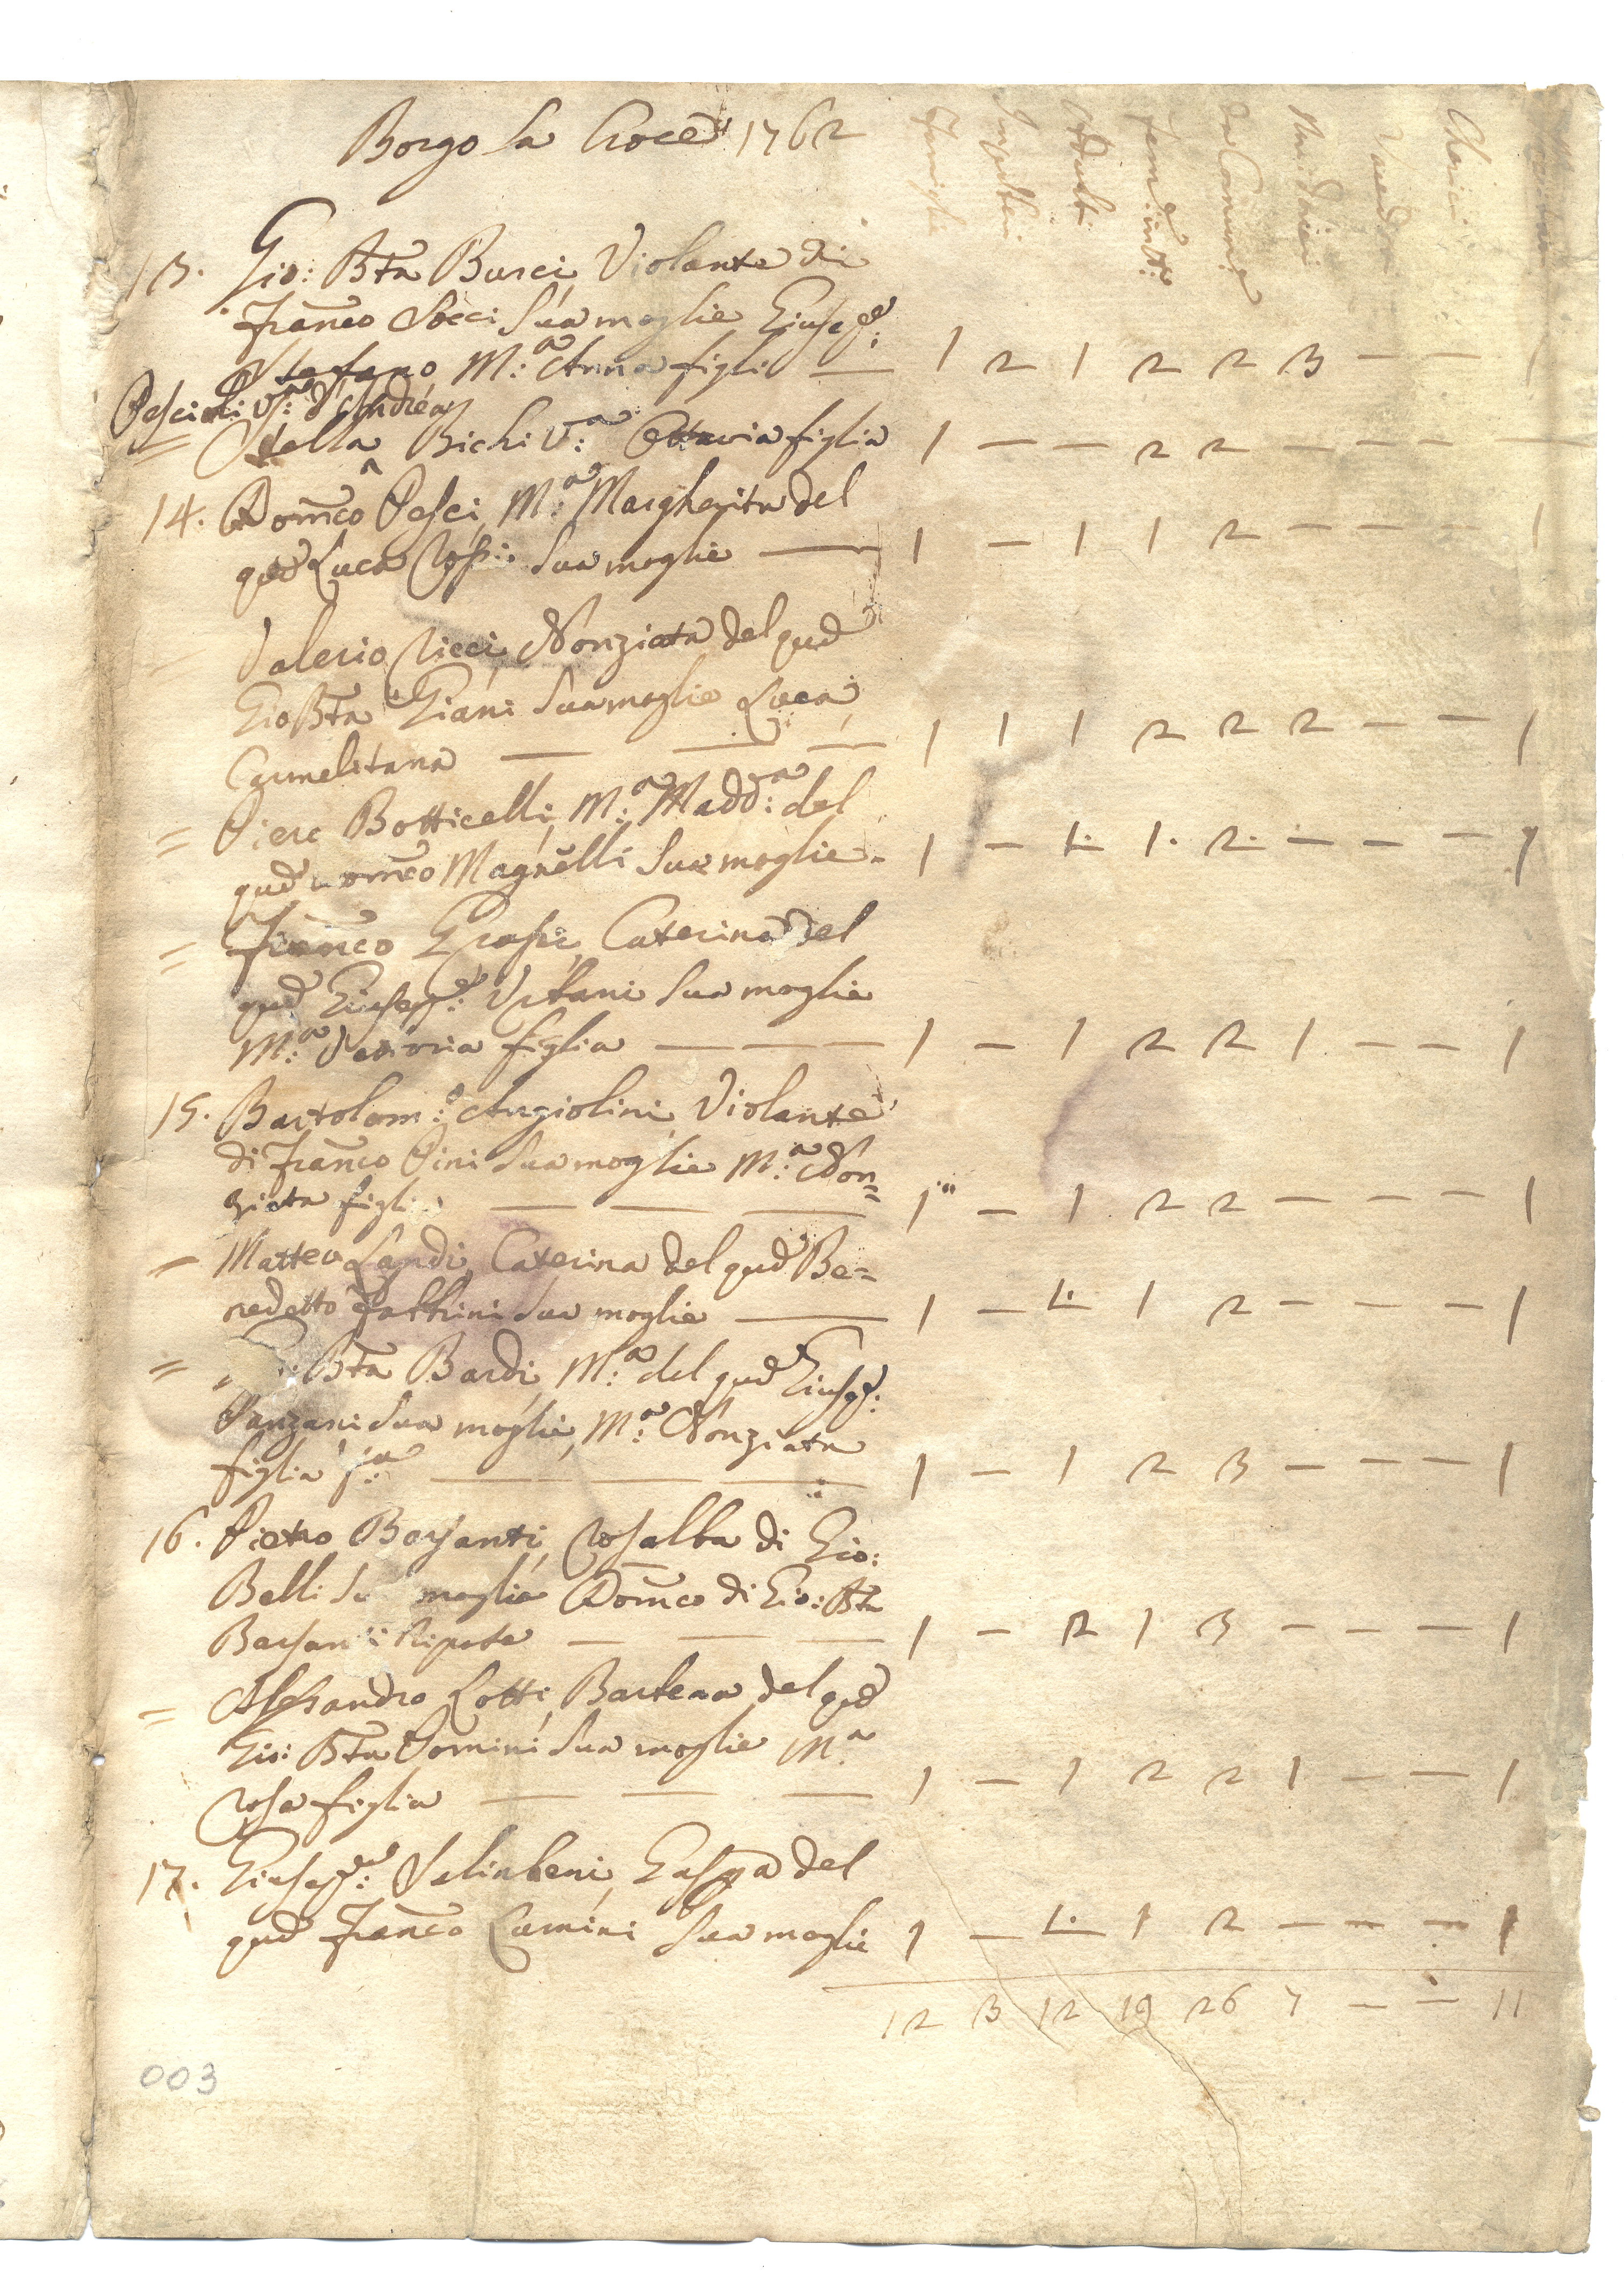 Borgo la Croce 1762
Famiglie Impuberi Adulti Femm: in tt: da Comun: Sacerdoti Cherici
13. Gio: Bta Burci, Violante di
Franco Socci Sua moglie, Giusepe:
Stefano, M:a Anna figli — 1 2 1 2 2 3 — — 1
Pescioli V:a d'Andrea
= Stella Bichi V:a Ottavia figlia 1 — — 2 2 — — — —
14. Domco Pesci, M:a Margherita del
qud Luca Rossi Sua moglie — 1 — 1 1 2 — — — — 1
= Valerio Ricci, Nonziata del qud
Gio Bta Giani Sua moglie Luca,
Carmelitana — — — 1 1 1 2 2 2 — — 1
= Piero Botticelli, M:a Madd:a del
qud Domco Magnelli Sua moglie - 1 — 1. 1. 2. — — — 1
= Franco Grassi, Caterina del
qud Giusepe: Vitani Sua moglie
M:a figlia — — — 1 — 1 2 2 1 — — 1
15. Bartolom:o Angiolini, Violante
di Franco Pini Sua moglie M:a Non=
ziata figli — — — 1 — 1 2 2 — — — 1
= Matteo Landi, Caterina del qud Be=
nedetto Fattrini Sua moglie — 1 — 1. 1 2 — — — 1
= : Bta Bardi, M:a del qud Giusepe:
Panzani Sua moglie, M:a Nonziata
figlia — — — 1 — 1 2 3 — — — 1
16. Pietro Barsanti, Rosalba di Gio:
Belli Su moglie Domco di Gio: Bta
Barsanti Nipote — — — 1 — 2 1 3 — — — 1
= Alessandro Lotti, Bartema del qud
Gio: Bta Domini Sua moglie M:a
Rosa figlia — — — 1 — 1 2 2 1 — — 1
17. Giusepe: Saliabeni, Gaspa del
qud Franco Lumini Sua moglie 1 — 1. 1 2 — — — 1
12 3 12 19 26 7 — — 11
003